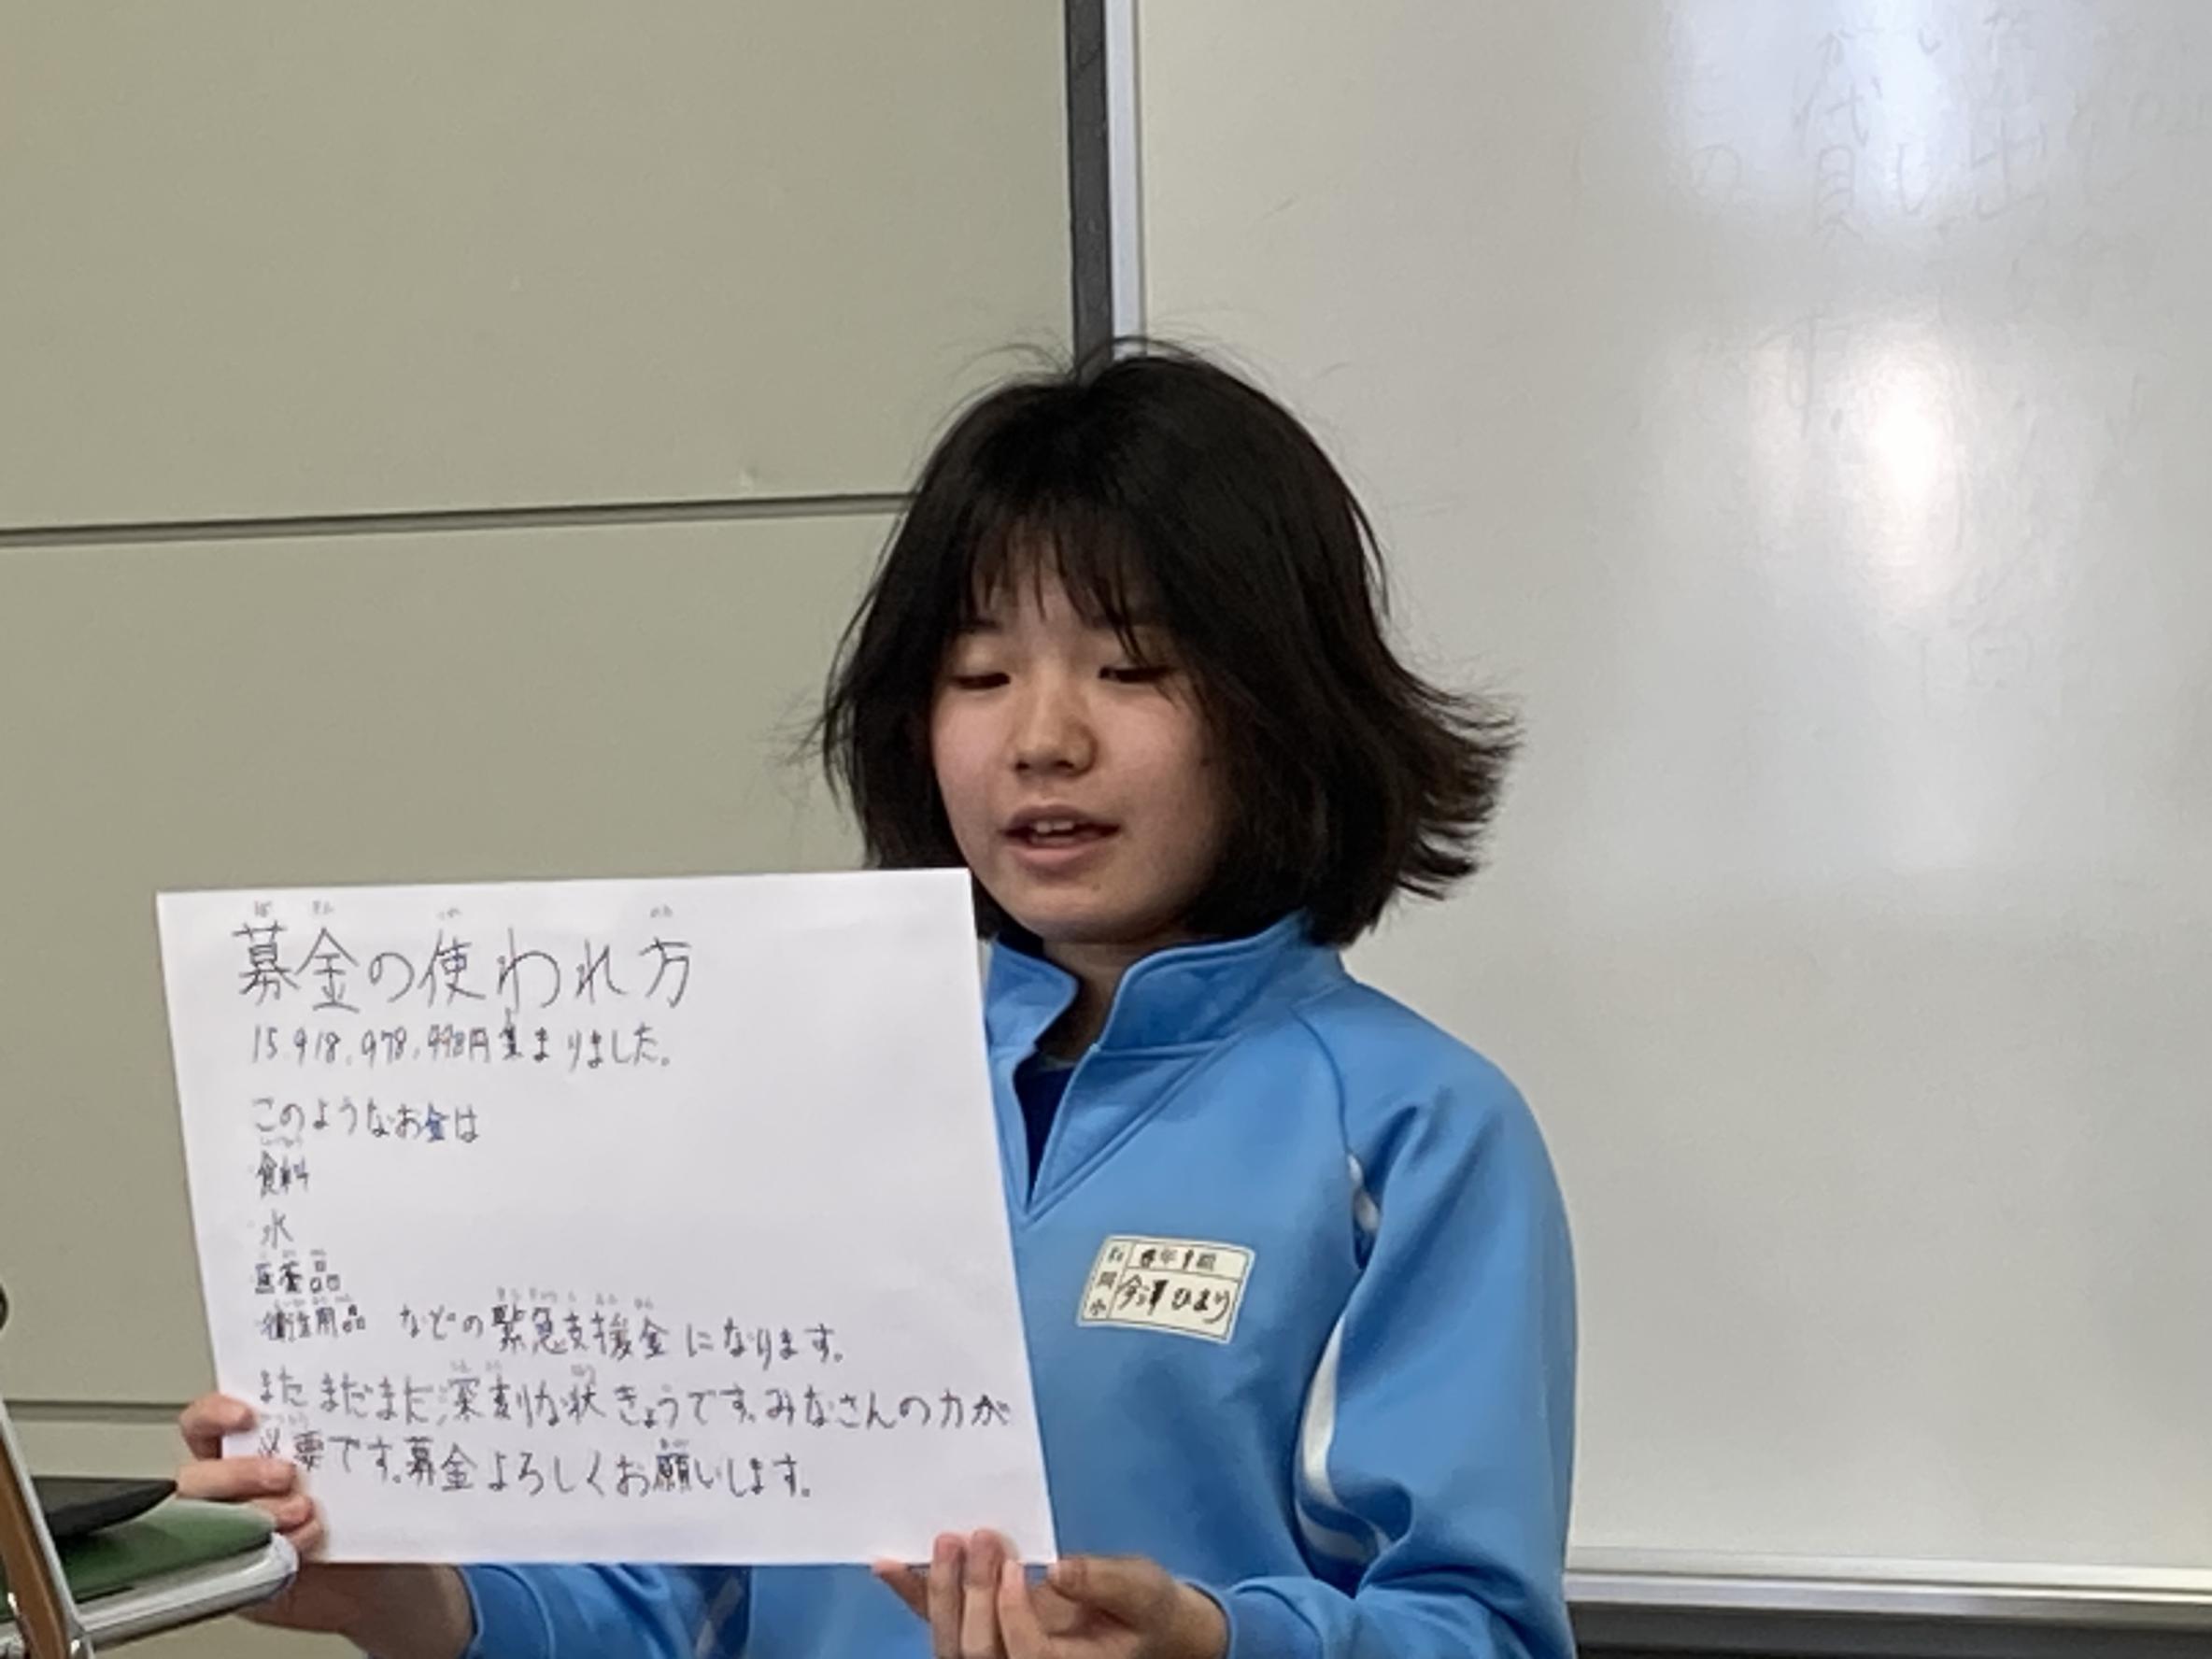 募金の使われ方
15,918,978,998円集まりました。
このようなお金は
食料
水
医薬品
衛生用品 などの緊急支援金になります。
またまだまだ深刻な状きょうです。みなさんの力が
必要です。募金よろしくお願いします。
年1組
今澤 ひまり